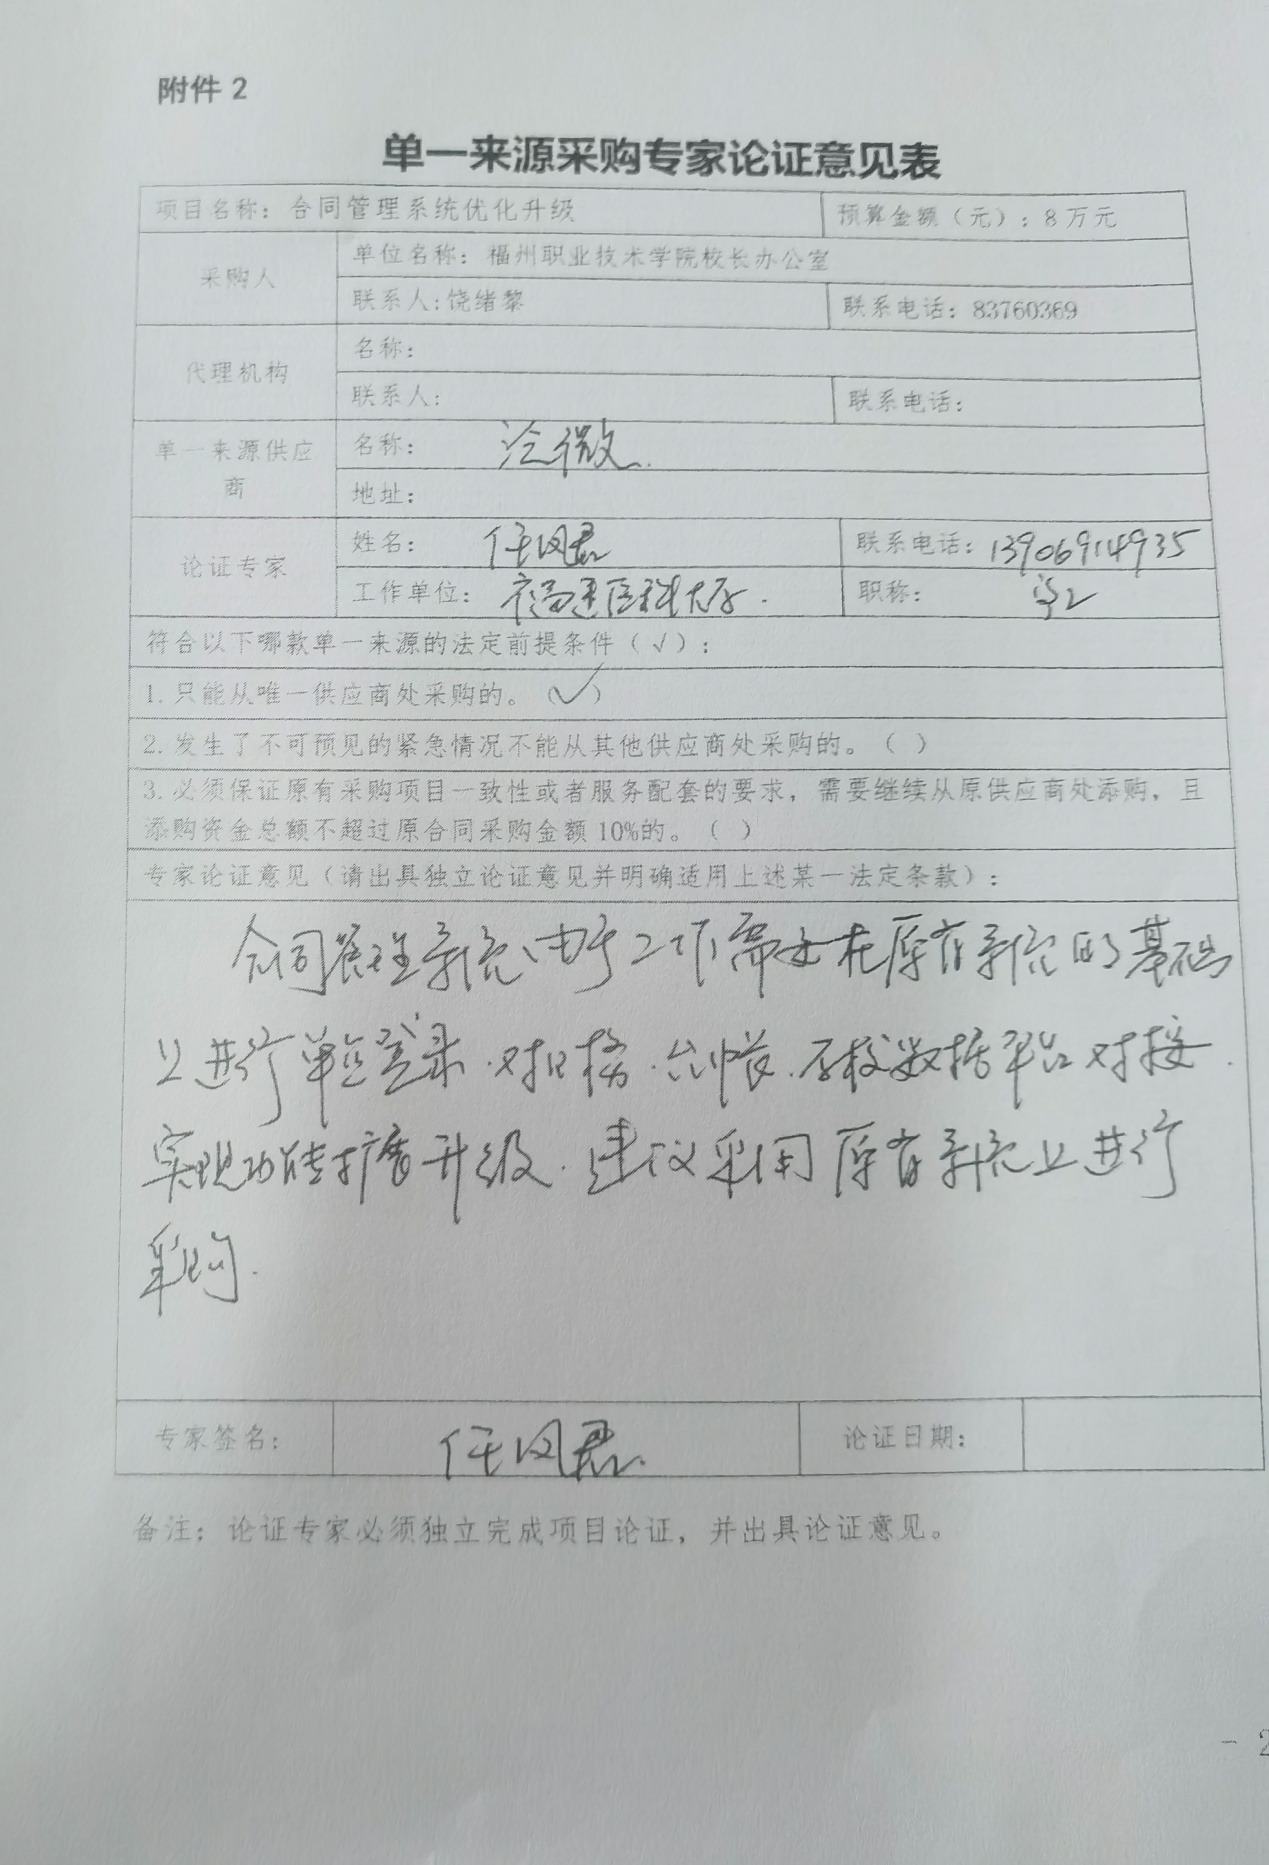 附件 2
单一来源采购专家论证意见表
项目名称：合同管理系统优化升级 预算金额（元）：8万元
采购人 单位名称：福州职业技术学院校长办公室
联系人:饶绪黎 联系电话：83760369
代理机构 名称：
联系人： 联系电话：
单一来源供应商 名称： 泛微.
地址：
论证专家 姓名： 任风君 联系电话：13906914935
工作单位： 福建医科大学. 职称：
符合以下哪款单一来源的法定前提条件（√）：
1.只能从唯一供应商处采购的。（√）
2.发生了不可预见的紧急情况不能从其他供应商处采购的。（ ）
3.必须保证原有采购项目一致性或者服务配套的要求，需要继续从原供应商处添购，且
添购资金总额不超过原合同采购金额 10%的。（ ）
专家论证意见（请出具独立论证意见并明确适用上述某一法定条款）：
合同管理系统,由于工作需要在原有系统的基础
上进行单点登录.对口.台帐.学校数据平台对接.
实现功能扩展升级.建议采用原有系统上进行
采购.
专家签名： 任风君. 论证日期：
备注：论证专家必须独立完成项目论证，并出具论证意见。
- 2